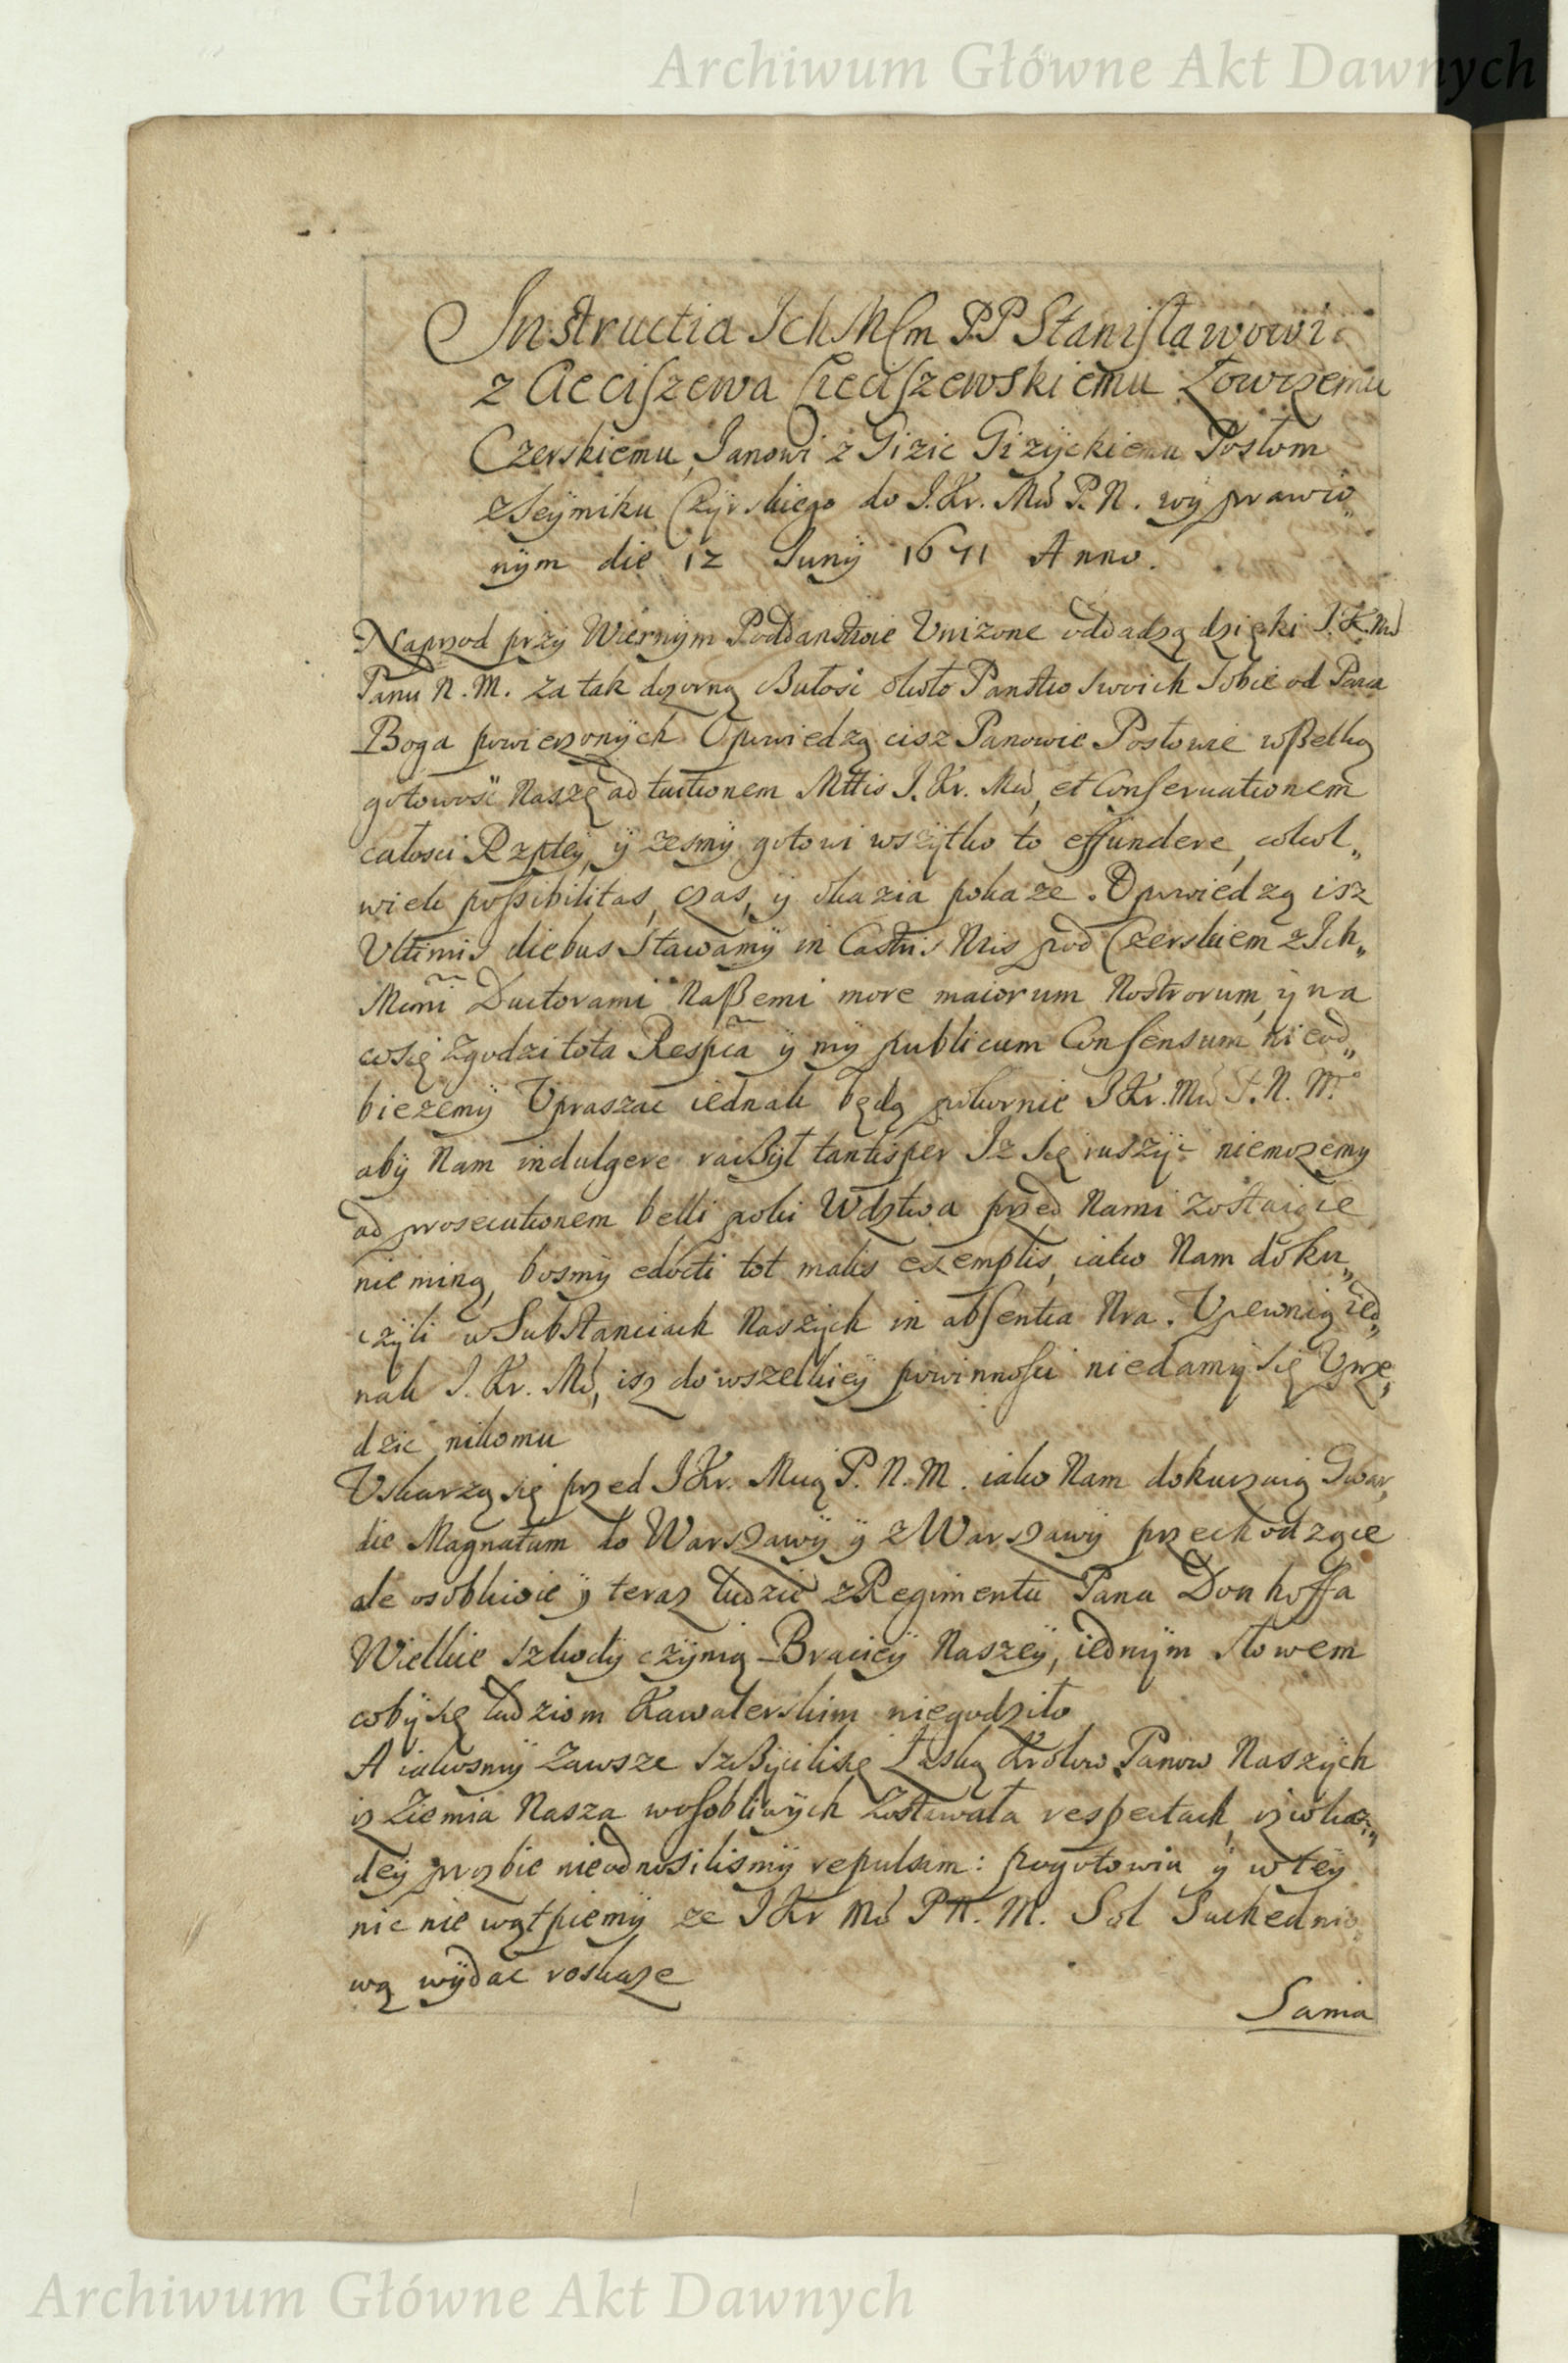 Archiwum Główne Akt Dawnych
Instructia Ich Mſm PP Staniſławowi
z Cieciſzewa Cieciſzewskiemu Łowczemu
Czerskiemu, Janowi z Gizic Giżÿckiemu Posłom
z Seÿmiku Czÿrskiego do J. Kr. Mći P. N. wÿprawio„
nÿm die 12 Junÿ 1671 Anno.
Naprzod przÿ Wiernÿm Poddanstwie Vnizone oddadzą dzięki J. K. Mći
Panu N. M. za tak dozorną czułość około Państw swoich Sobie od Pana
Boga powierzonÿch Opowiedzą cisz Panowie Posłowie wßelką
gotowość Naszę ad tuitionem Mttis J. Kr. Mći, et Conſeruationem
całosci Rzpteÿ, ÿ zesmÿ gotowi wszÿtko to effundere, cokol„
wiek poſsibilitas, czas, ÿ okazia pokaze. Opowiedzą isz
Vltimis diebus Stawamÿ in Castris Nris pod Czerskiem z Ich„
Mćmi Ductorami Naßemi more maiorum Nostrorum, ÿ na
co się zgodzi tota Respca ÿ mÿ publicum Conſensum nieod„
biezemÿ Vpraszac iednak będą pokornie J Kr. Mći P. N. M.
abÿ Nam indulgere racżÿł tantisper Iz się ruszÿć niemozemy
ad prosecutionem belli poki Wdztwa przed Nami zostaiące
nie miną, bosmÿ edocti tot malis exemplis, iako Nam doku„
czÿli w Substanciach Naszÿch in abſentia Nra. Vpewnią ied„
nak J. Kr. Mć, isz do wszelkieÿ powinnoſci niedamÿ się Vprze„
dzic nikomu
Vskarzą się przed J Kr. Mcią P. N. M. iako Nam dokuczaią Gwar„
die Magnatum do Warszawÿ ÿ z Warszawÿ przechodzące
ale osobliwie ÿ teraz ludzie z Regimentu Pana Donhoffa
Wielkie szkodÿ czÿnią Bracieÿ Naszeÿ, iednÿm słowem
cobÿ się ludziom Kawalerskim niegodziło
A iakosmÿ zawsze szczÿcili się Łaską Krolow Panow Naszÿch
isz Ziemia Nasza w oſobliwÿch zostawała respectach, isz w kaz„
deÿ prozbie nieodnosilismÿ repulsam: pogotowiu ÿ w teÿ
nic nie wątpiemÿ ze J Kr Mć P N. M. Sol Suchednio„
wą wÿdac roskaze
Sama
Archiwum Główne Akt Dawnych